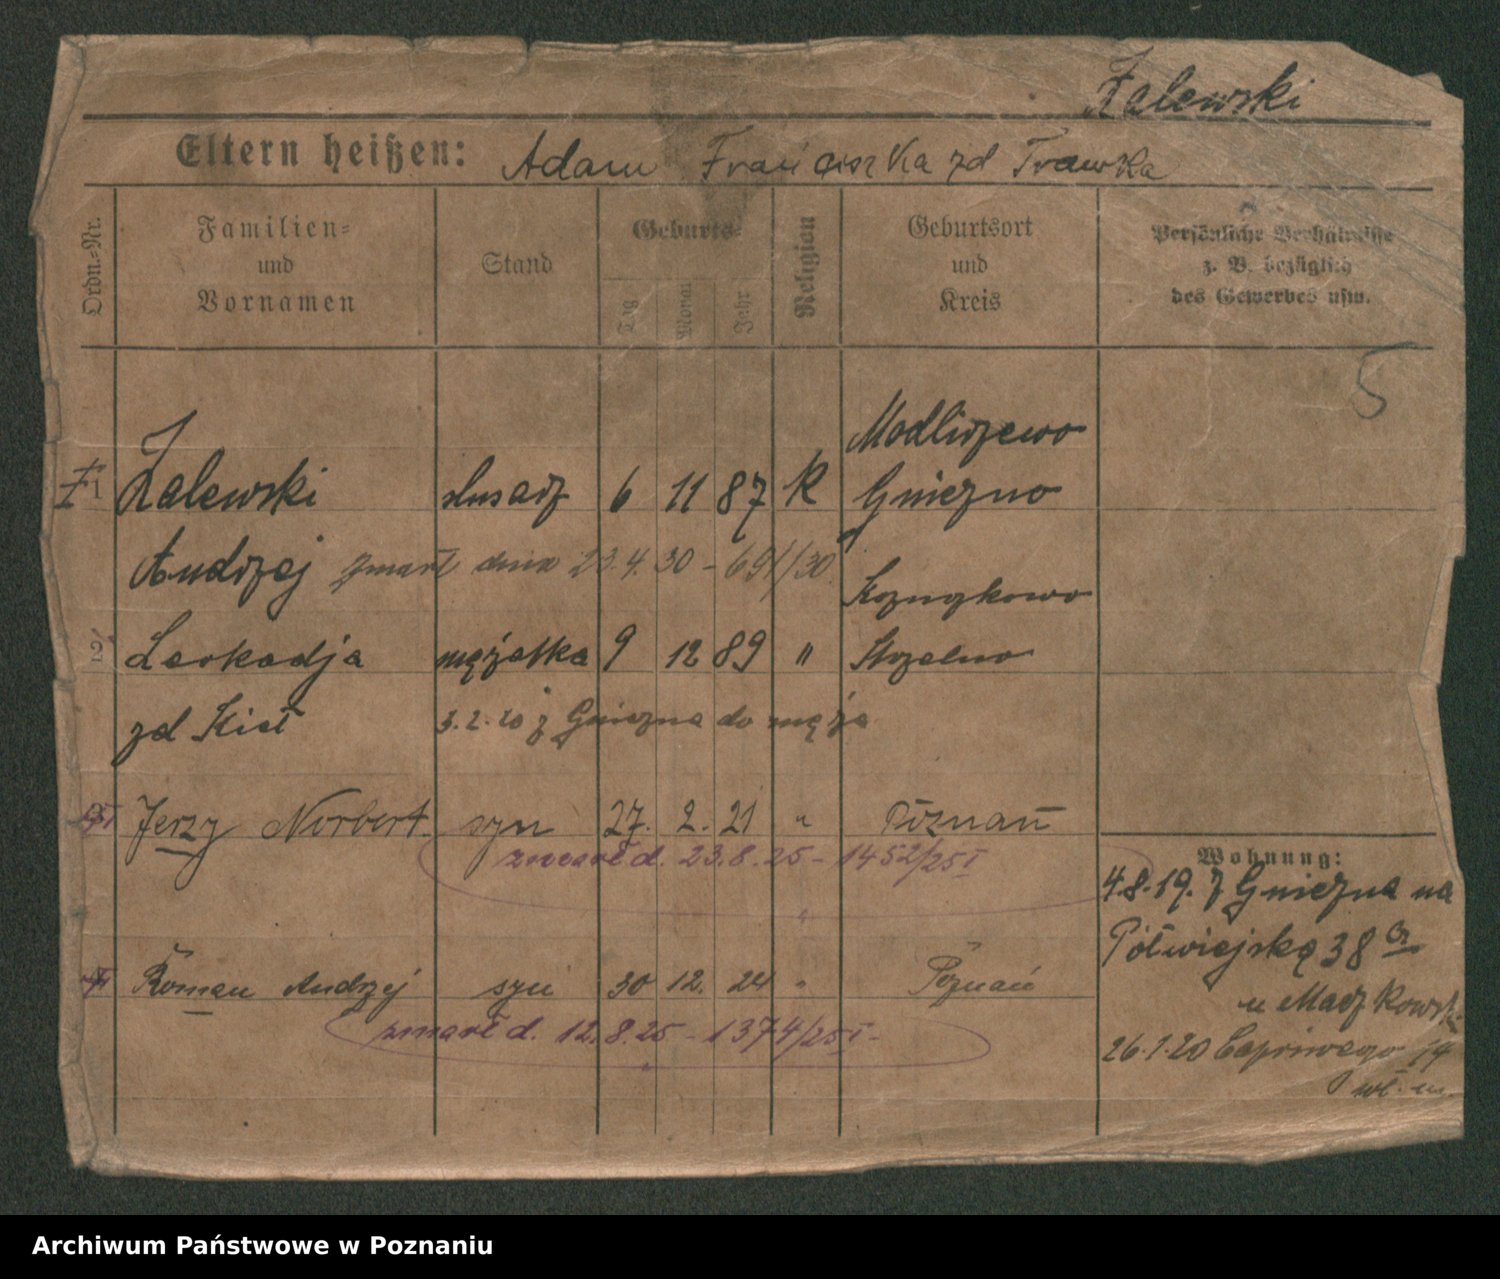 Zalewski
Eltern heißen: Adam Franciszka zd Trawka
Ordn.-Nr.
Familien-
und
Vornamen
Stand
Geburts-
Tag
Monat
Jahr
Religion
Geburtsort
und
Kreis
Persönliche Verhältnisse
z. B. bezüglich
des Gewerbes usw.
5
Modliszewo
1 Zalewski ślusarz 6 11 87 K Gniezno
Andrzej zmarł dnia 23.4.30 – 691/30
2 Leokadja mężatka 9 12 89 " Strzelno
zd Kiel 3.2.20 z Gniezna do męża
3 Jerzy Norbert syn 27. 2. 21 " Poznań
zmarł d. 23.8.25 – 1452/25 I
4 Roman Andrzej syn 30 12. 24 " Poznań
zmarł d. 12.8.25 – 1374/25 I –
Wohnung:
4.8.19. z Gniezna na
Półwiejską 38
u
26.1.20 Capriwego 19
wł. m.